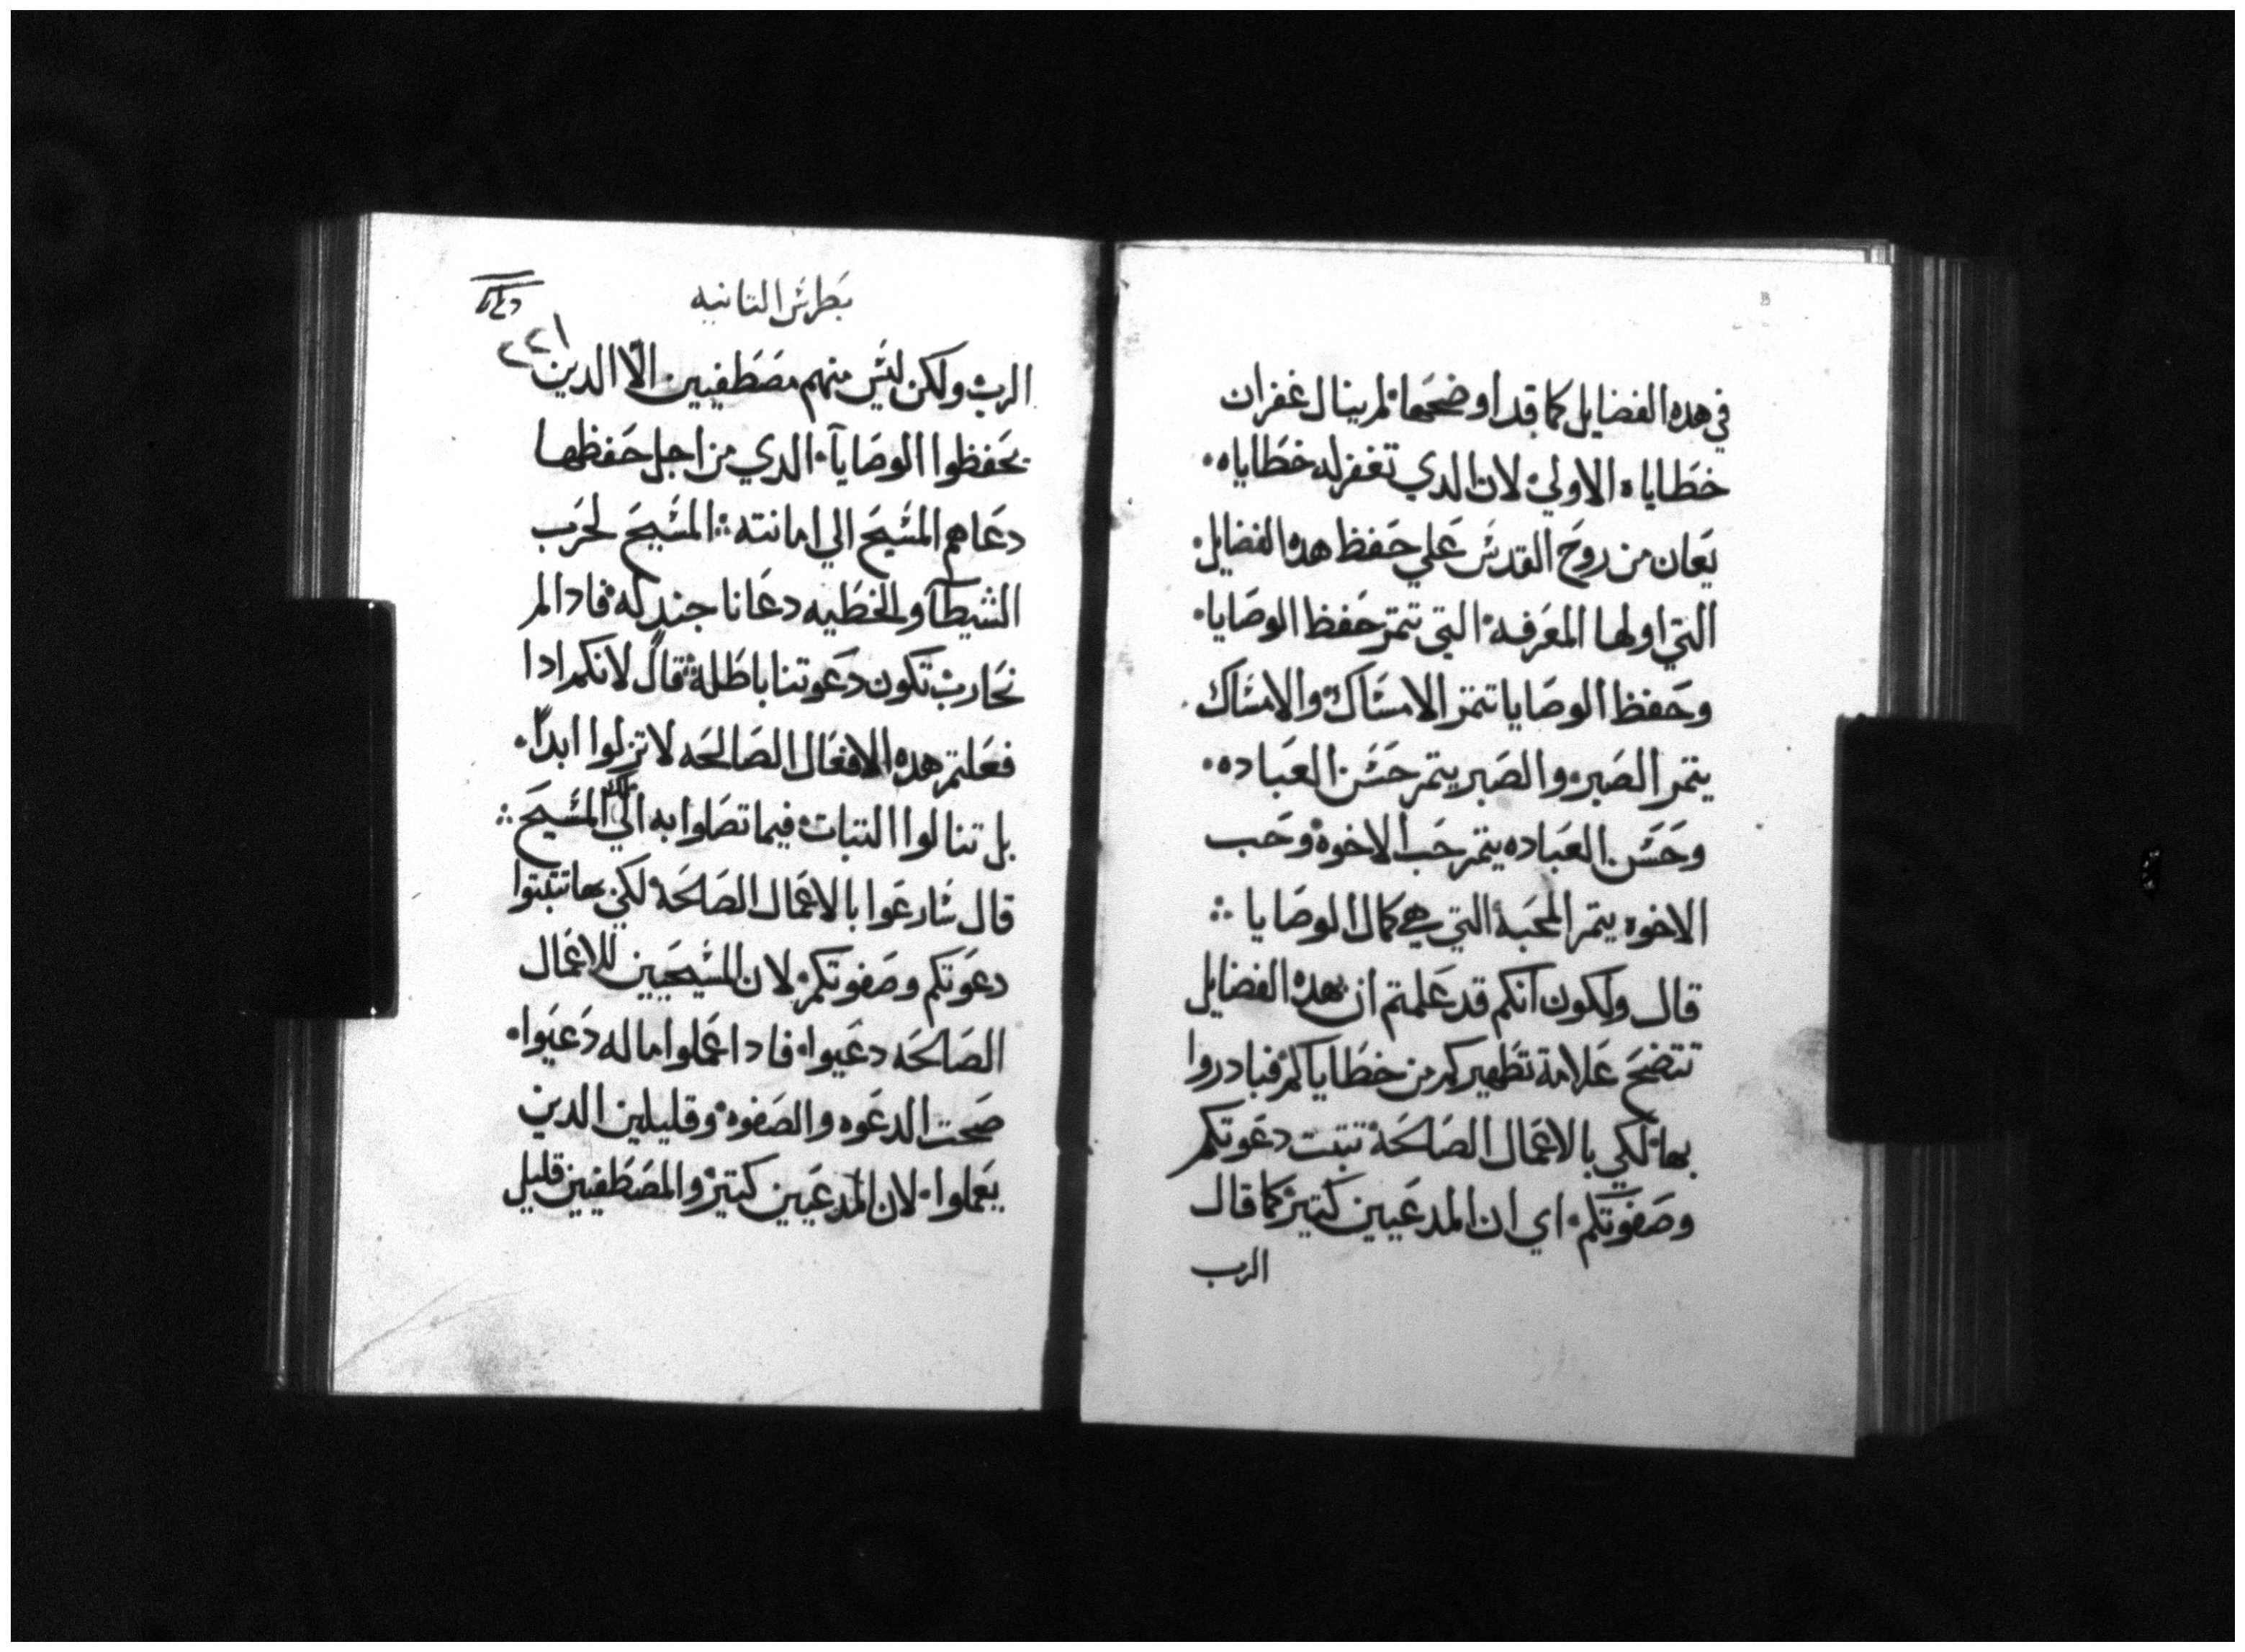 في هده الفضايل كما قد اوضحها لم ينال غفران
خطاياه الاولي لان الدي تغفر له خطاياه
يعان من روح القدس علي حفظ هده الفضايل
التي اولها المعرفه التي تتم حفظ الوصايا
وحفظ الوصايا تتم الامساك والامساك
يتم الصبر والصبر يتم حسن العباده
وحسن العباده يتم حب الاخوة وحب
الاخوه يتم المحبة التي هي كمال الوصايا
قال ولكون انكم قد علمتم ان بهده الفضايل
تتضح علامة تطهيركم من خطاياكم فبادروا
بها لكي بالاعمال الصالحة تتبت دعوتكم
وصفوتكم اي ان المدعيين كتير كما قال
الرب
بطرس التانيه
٢٢١
الرب ولكن ليس منهم مصطفيين الا الدين
يحفظوا الوصايا الدي من اجل حفظها
دعاهم المسيح الي امانته المسيح لحرب
الشيطان والخطيه دعانا جند له فادا لم
نحارب تكون دعوتنا باطلة قال لانكم ادا
فعلتم هده الافعال الصالحه لا تزلوا ابدا
بل تنالوا التبات فيما تصلوا به الي ملك المسيح
قال سارعوا بالاعمال الصالحة لكي بها تتبتوا
دعوتكم وصفوتكم لان المسيحيين للاعمال
الصالحه دعيوا فادا عملوا ما له دعيوا
صحت الدعوه والصفوه وقليلين الدين
يعملوا لان المدعيين كتير والمصطفيين قليل